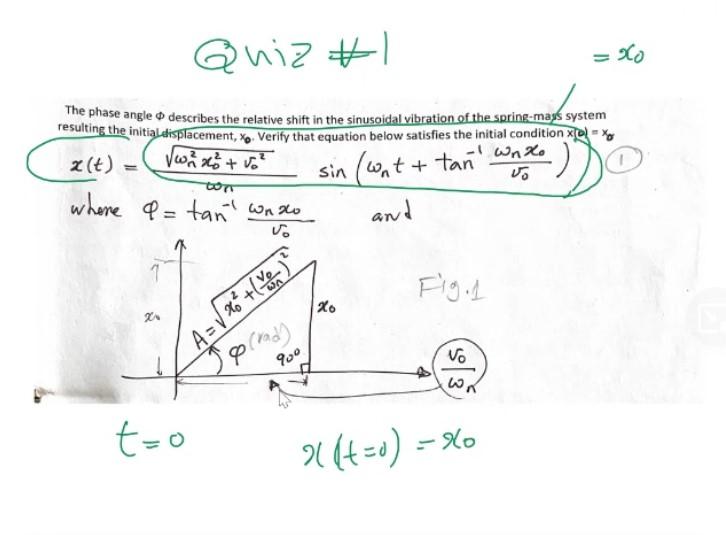 Quiz #1
= x₀
The phase angle Φ describes the relative shift in the sinusoidal vibration of the spring-mass system
resulting the initial displacement, x₀. Verify that equation below satisfies the initial condition x(0) = x₀
x(t) = √(ωₙ² x₀² + v₀²) / ωₙ sin (ωₙt + tan⁻¹ ωₙx₀ / v₀) ①
where φ = tan⁻¹ ωₙx₀ / v₀ and
A = √(x₀² + (v₀/ωₙ)²)
Fig.1
x₀
x₀
φ (rad)
90°
v₀ / ωₙ
t=0
x(t=0) = x₀